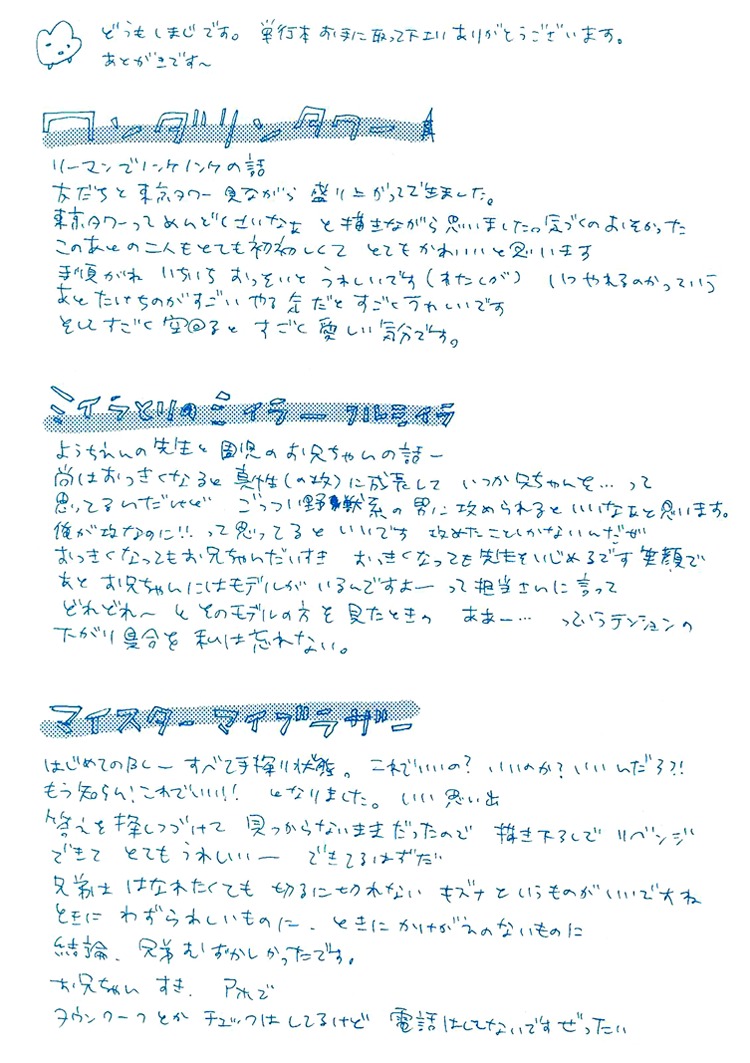 どうもしまじです。単行本お手に取って下さりありがとうございます。
あとがきです〜
ワンダリンタワー
リーマンでノンケノンケの話
友だちと東京タワー見ながら盛り上がってできました。
東京タワーってめんどくさいなぁと描きながら思いました 気づくのおそかった
このあとの二人もとても初初しくてとてもかわいいと思います
手順がね いちいちおっそいとうれしいです(わたしが) いつやれるのかっていう
あとたけちのがすごいやる気だとすごくうれしいです
そしてすごく空回ると すごく愛しい気分です。
ミイラとりのミイラーフルミイラ
ようちえんの先生と園児のお兄ちゃんの話ー
尚はおっきくなると真性(の攻)に成長して いつか兄ちゃんを…って
思ってるんだけど ごっつい野獣系の男に攻められるといいなぁと思います。
俺が攻なのに!!って思ってるといいです 攻めたことしかないんだぜ
おっきくなってもお兄ちゃんだいすき おっきくなっても先生をいじめるです笑顔で
あとお兄ちゃんにはモデルがいるんですよーって担当さんに言って
どれどれ〜とそのモデルの方を見たときの ああー…っていうテンションの
下がり具合を私は忘れない。
マイスターマイブラザー
はじめてのBLーすべて手探り状態。これでいいの?いいのか?いいんだろ?!
もう知らん!これでいい!! となりました。いい思い出
答えを探しつづけて見つからないままだったので 描き下ろしでリベンジ
できてとてもうれしいー できてるはずだ
兄弟は はなれたくても切るに切れないキズナというものがいいですね
ときにわずらわしいものに、ときにかけがえのないものに
結論、兄弟むずかしかったです。
お兄ちゃんすき。アホで
タウンワークとかチェックはしてるけど 電話はしてないですぜったい